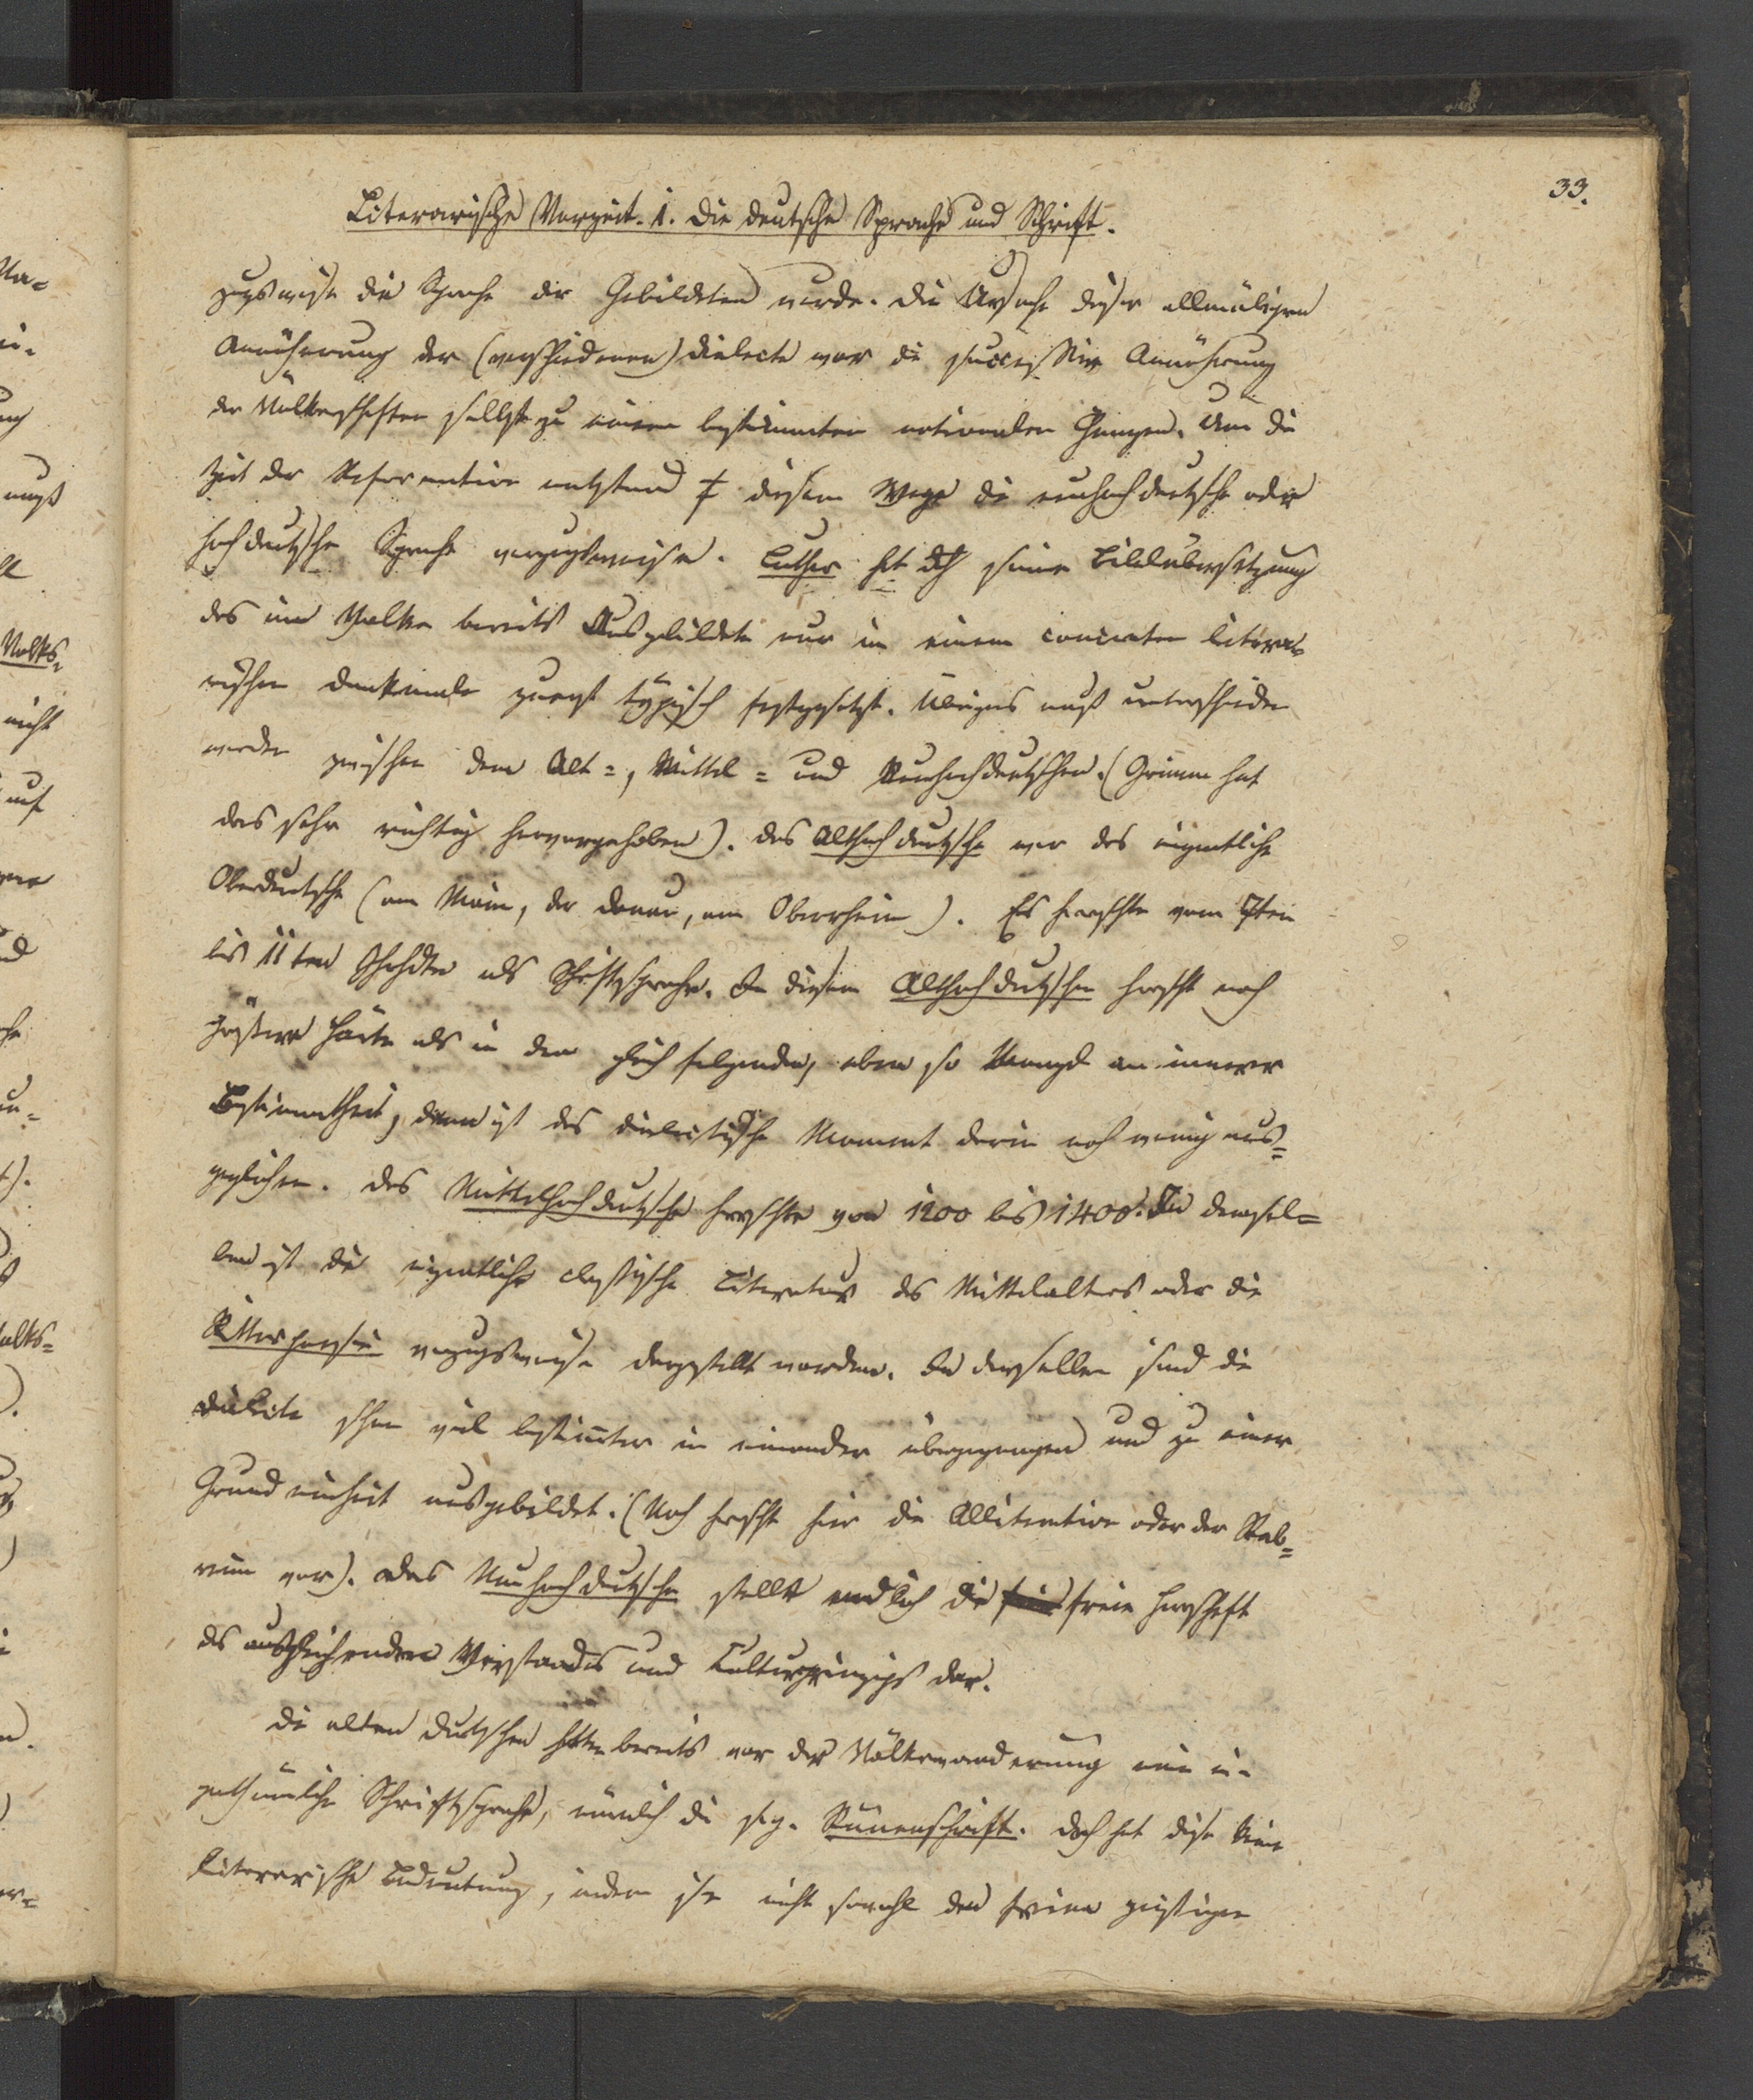 33.
Literarische Vorzeit. 1. Die deutsche Sprache und Schrift.
zugsweise die Sprache der Gebildeten wurde. Die Ursache dieser allmäligen
Annäherung der (verschiedenen) Dialecte war die successive Annäherung
der Völkerschaften selbst zu einem bestimmten nationalen Ganzen. Um die
Zeit der Reformation entstand diesem Wege die neuhochdeutsche oder
hochdeutsche Sprache vorzugsweise. Luther hat dch seine Bibelübersetzung
das im Volke bereits Ausgebildete nur in einem concreten litera-
rischen Denkmale zuerst typisch festgesetzt. Übrigens muß unterschieden
werden zwischen dem Alt=, Mittel= und Neuhochdeutschen. (Grimm hat
das sehr richtig hervorgehoben). Das Althochdeutsche war das eigentliche
Oberdeutsche (am Main, der Donau, am Oberrhein). Es herrschte vom 7ten
bis 11ten Jhhdte als Schriftsprache. In diesem Althochdeutschen herrscht noch
größere Härte als in den gleich folgenden, eben so Mangel an innerer
Bestimmtheit, denn ist das dialectische Moment darin noch wenig aus=
geglichen. Das Mittelhochdeutsche herrschte von 1200 bis 1400. In demsel=
ben ist die eigentliche classische Literatur des Mittelalters oder die
Ritterpoesie vorzugsweise dargestellt worden. In derselben sind die
Dialecte schon viel bestimter in einander übergegangen und zu einer
Grundeinheit ausgebildet. (Noch herrscht hier die Alliteration oder der Stab=
reim vor). Das Neuhochdeutsche stellt endlich die freie Herrschaft
des ausgleichenden Verstandes und Culturprinzips dar.
Die alten Deutschen hatten bereits vor der Völkerwanderung eine ei-
genthümliche Schriftsprache, nämlich die sog. Runenschrift. Doch hat diese keine
literarische Bedeutung, indem sie nicht sowohl den freien geistigen
Volks=
nicht
auf